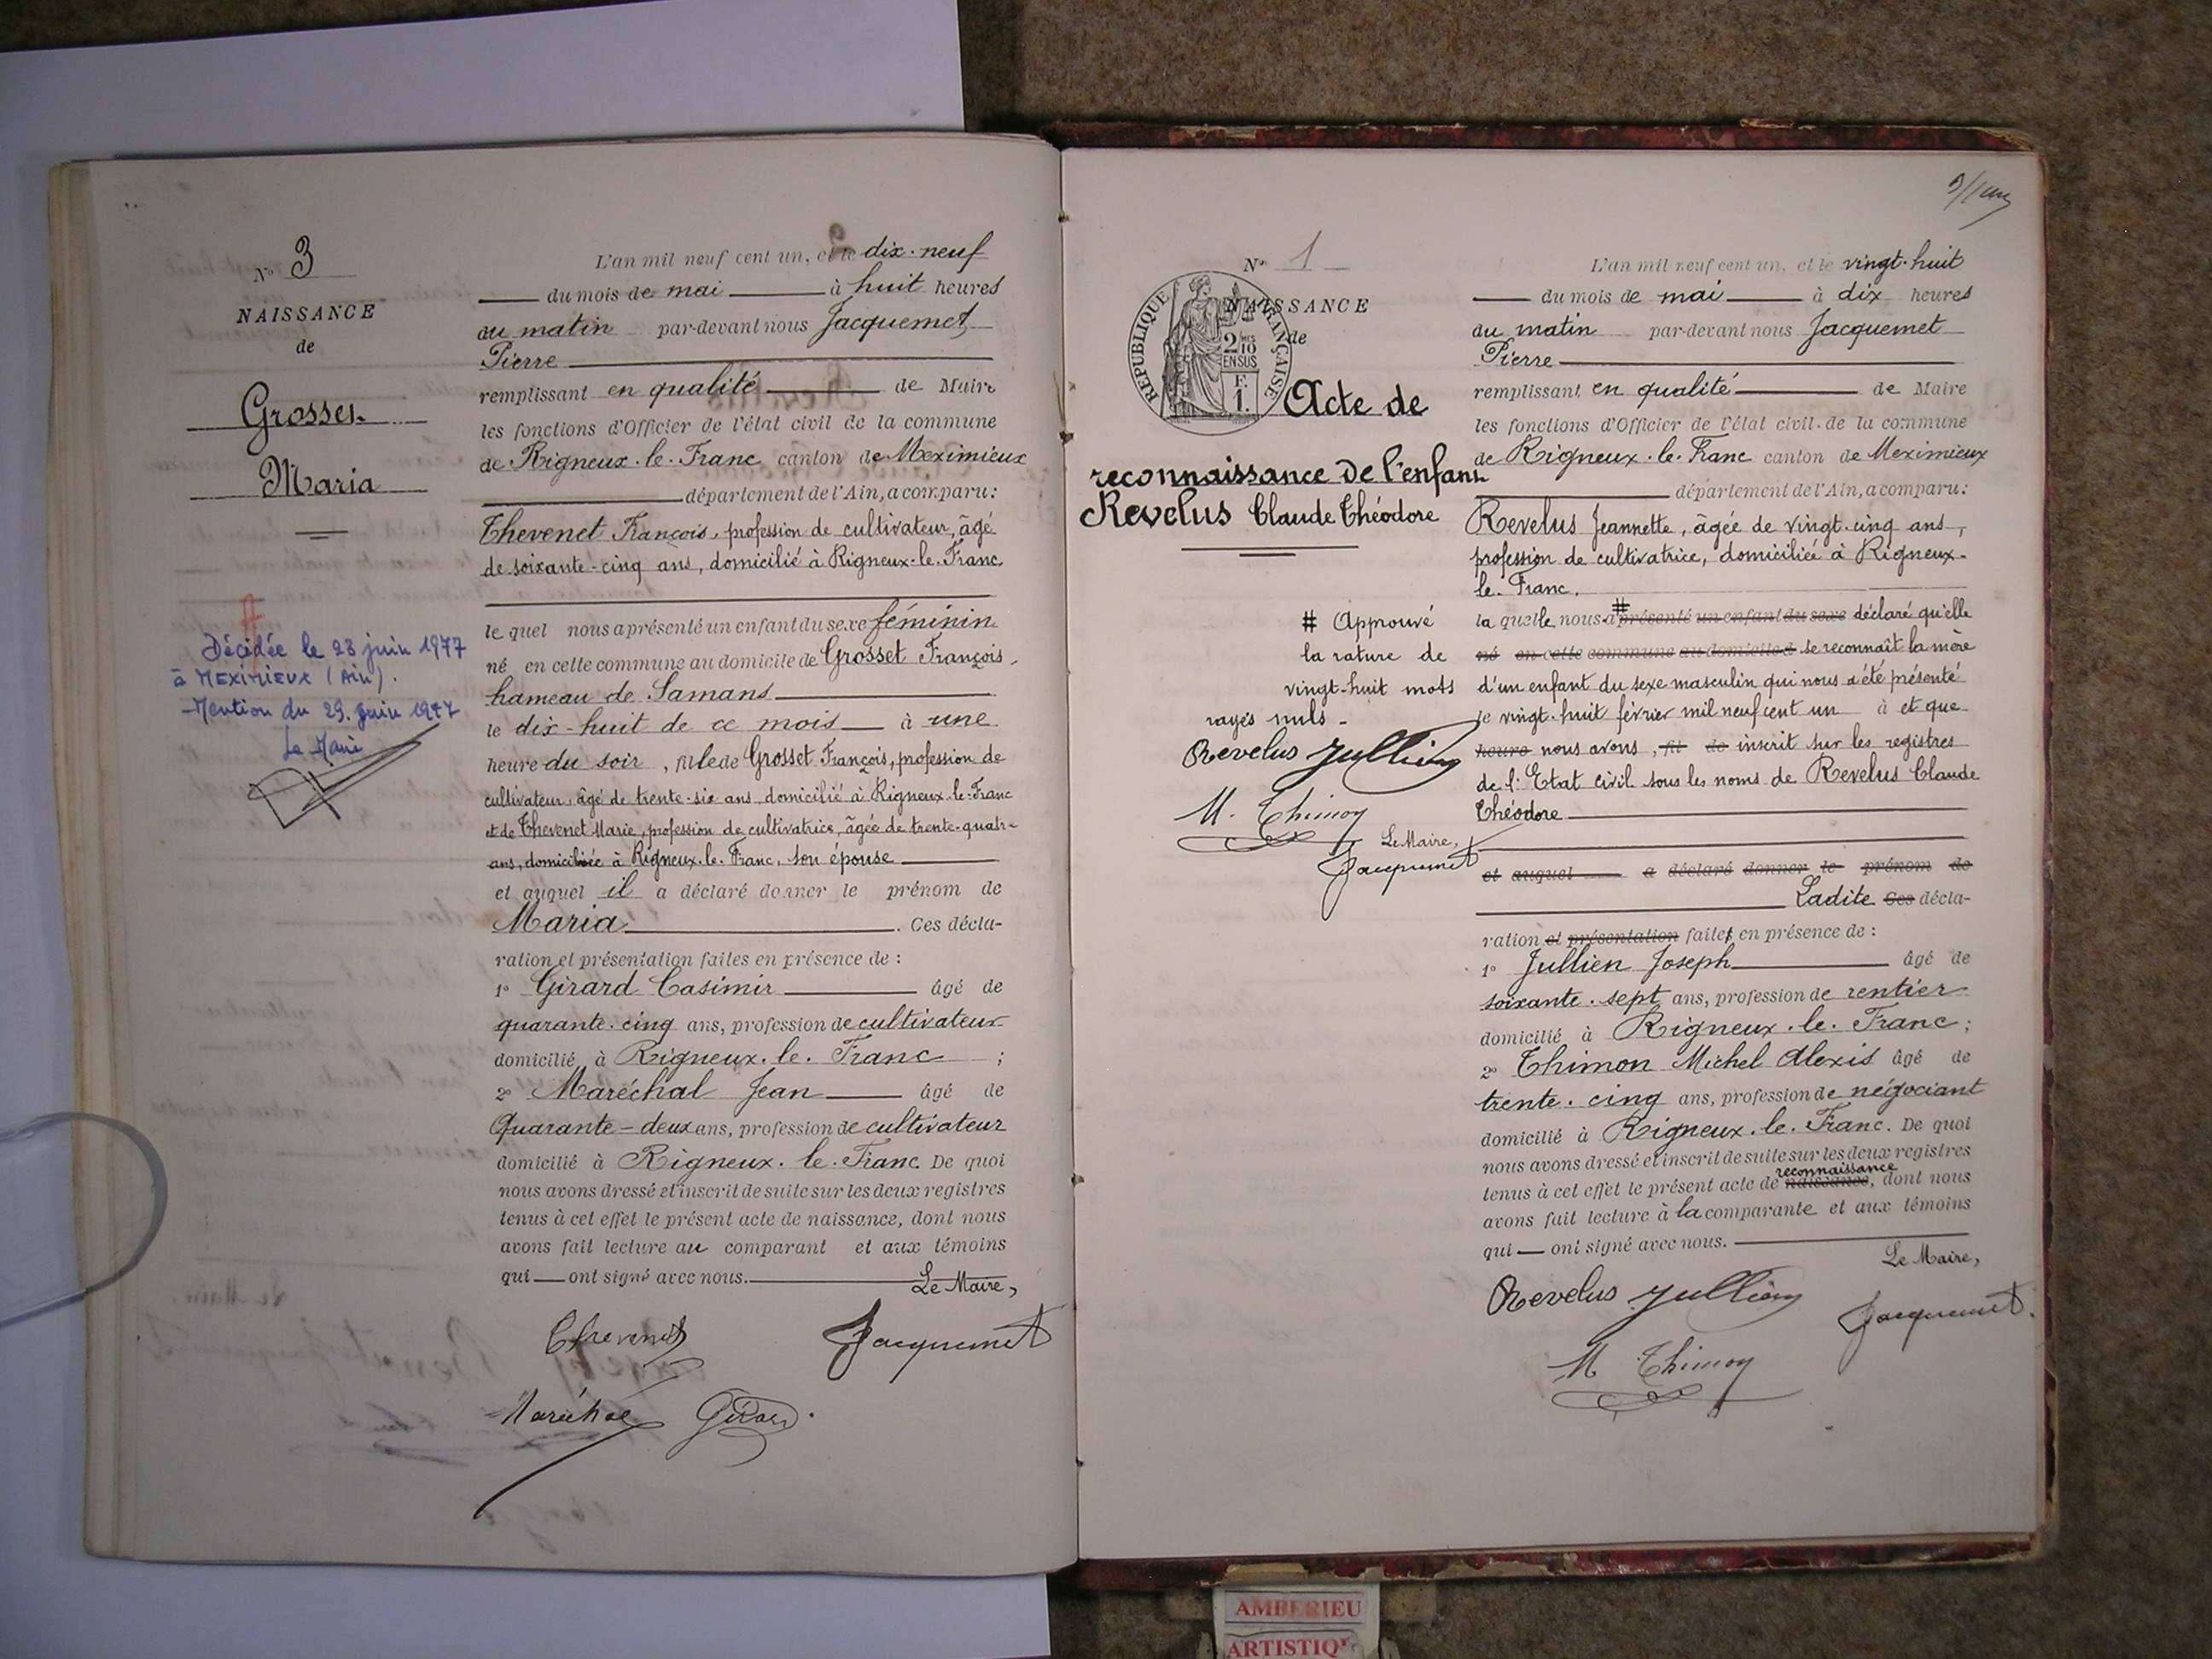 N° 3
NAISSANCE
de
Grosset
Maria
Décédée le 23 juin 1977
à MEXIMIEUX (Ain).
- Mention du 29 juin 1977
Le Maire
L'an mil neuf cent un, et le dix-neuf
du mois de mai à huit heures
du matin par-devant nous Jacquemet
Pierre
remplissant en qualité de Maire
les fonctions d'Officier de l'état civil de la commune
de Rigneux-le-Franc canton de Meximieux
département de l'Ain, a comparu:
Thevenet François, profession de cultivateur, âgé
de soixante-cinq ans, domicilié à Rigneux-le-Franc
le quel nous a présenté un enfant du sexe féminin
né en cette commune au domicile de Grosset François,
hameau de Samans
le dix-huit de ce mois à une
heure du soir, fille de Grosset François, profession de
cultivateur, âgé de trente-six ans domicilié à Rigneux-le-Franc
et de Thevenet Marie, profession de cultivatrice, âgée de trente-quatre
ans, domiciliée à Rigneux-le-Franc, son épouse
et auquel il a déclaré donner le prénom de
Maria. Ces décla-
ration et présentation faites en présence de :
1° Girard Casimir âgé de
quarante-cinq ans, profession de cultivateur
domicilié à Rigneux-le-Franc ;
2° Maréchal Jean âgé de
Quarante-deux ans, profession de cultivateur
domicilié à Rigneux-le-Franc. De quoi
nous avons dressé et inscrit de suite sur les deux registres
tenus à cet effet le présent acte de naissance, dont nous
avons fait lecture au comparant et aux témoins
qui ont signé avec nous.
Le Maire,
Thevenet Jacquemet
Maréchal Girard
N° 1
NAISSANCE
de
REPUBLIQUE FRANÇAISE
2 MES
10
EN SUS
F.
1.
Acte de
reconnaissance de l'enfant
Revelus Claude Théodore
# Approuvé
la rature de
vingt-huit mots
rayés nuls -
Revelus Jullien
M. Thimon
Le Maire,
Jacquemet
L'an mil neuf cent un, et le vingt-huit
du mois de mai à dix heures
du matin par-devant nous Jacquemet
Pierre
remplissant en qualité de Maire
les fonctions d'Officier de l'état civil de la commune
de Rigneux-le-Franc canton de Meximieux
département de l'Ain, a comparu:
Revelus Jeannette, âgée de vingt-cinq ans,
profession de cultivatrice, domiciliée à Rigneux-
le-Franc.
la quelle nous a # présenté un enfant du sexe déclaré qu'elle
né en cette commune au domicile d se reconnaît la mère
d'un enfant du sexe masculin qui nous a été présenté
le vingt-huit février mil neuf cent un à et que
heure nous avons, fil de inscrit sur les registres
de l'Etat civil sous les noms de Revelus Claude
Théodore
et auquel a déclaré donner le prénom de
Ladite Ces décla-
ration et présentation faites en présence de :
1° Jullien Joseph âgé de
soixante-sept ans, profession de rentier
domicilié à Rigneux-le-Franc ;
2° Thimon Michel Alexis âgé de
trente-cinq ans, profession de négociant
domicilié à Rigneux-le-Franc. De quoi
nous avons dressé et inscrit de suite sur les deux registres
reconnaissance
tenus à cet effet le présent acte de naissance, dont nous
avons fait lecture à la comparante et aux témoins
qui ont signé avec nous.
Le Maire,
Revelus Jullien Jacquemet
M Thimon
AMBERIEU
ARTISTIQ